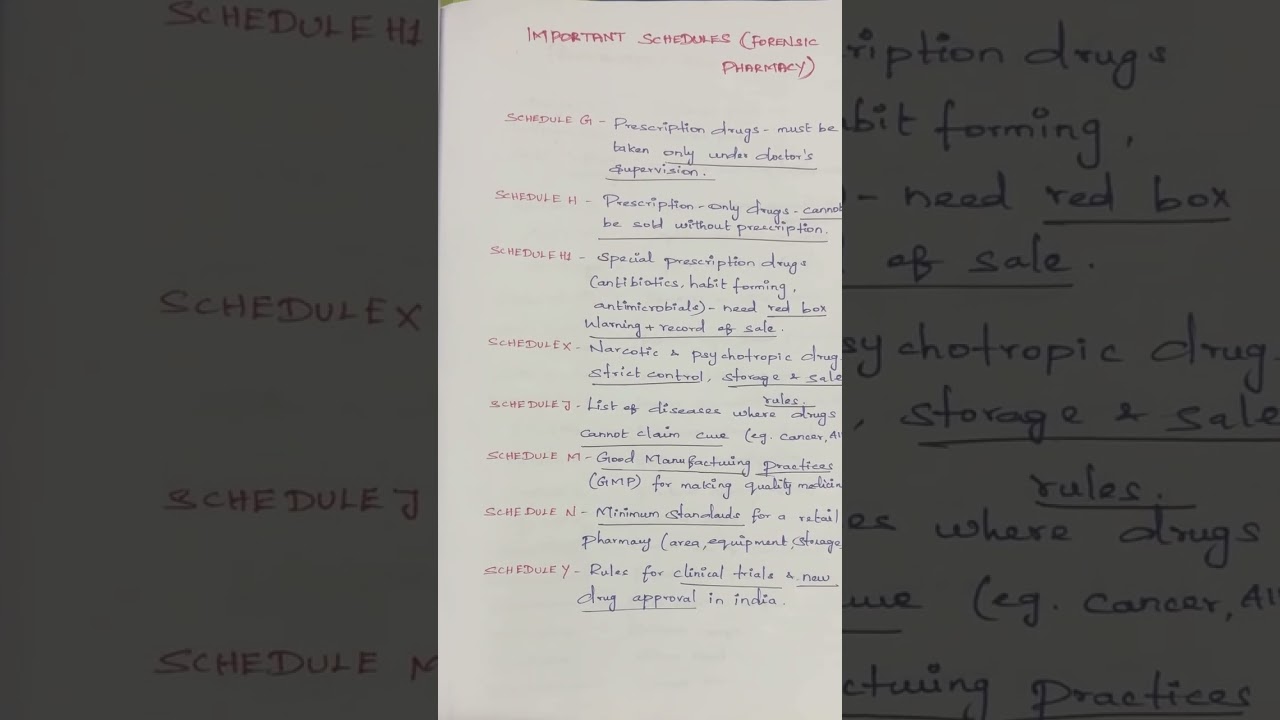 IMPORTANT SCHEDULES (FORENSIC
PHARMACY)
SCHEDULE G - Prescription drugs - must be
taken only under doctor's
supervision.
SCHEDULE H - Prescription - only drugs - cannot
be sold without prescription.
SCHEDULE H1 - Special prescription drugs
(antibiotics, habit forming,
antimicrobials) - need red box
Warning + record of sale.
SCHEDULE X - Narcotic & psychotropic drug
strict control, storage & sale
rules.
SCHEDULE J - List of diseases where drugs
cannot claim cure (eg. cancer, AI
SCHEDULE M - Good Manufacturing Practices
(GMP) for making quality medicin
SCHEDULE N - Minimum standards for a retail
pharmacy (area, equipment, storage,
SCHEDULE Y - Rules for clinical trials & new
drug approval in india.
SCHEDULE H1
SCHEDULE X
SCHEDULE J
SCHEDULE M
ription drugs
bit forming,
- need red box
of sale.
sychotropic drug
, storage & sale
rules.
es where drugs
cure (eg. cancer, AI
cturing Practices